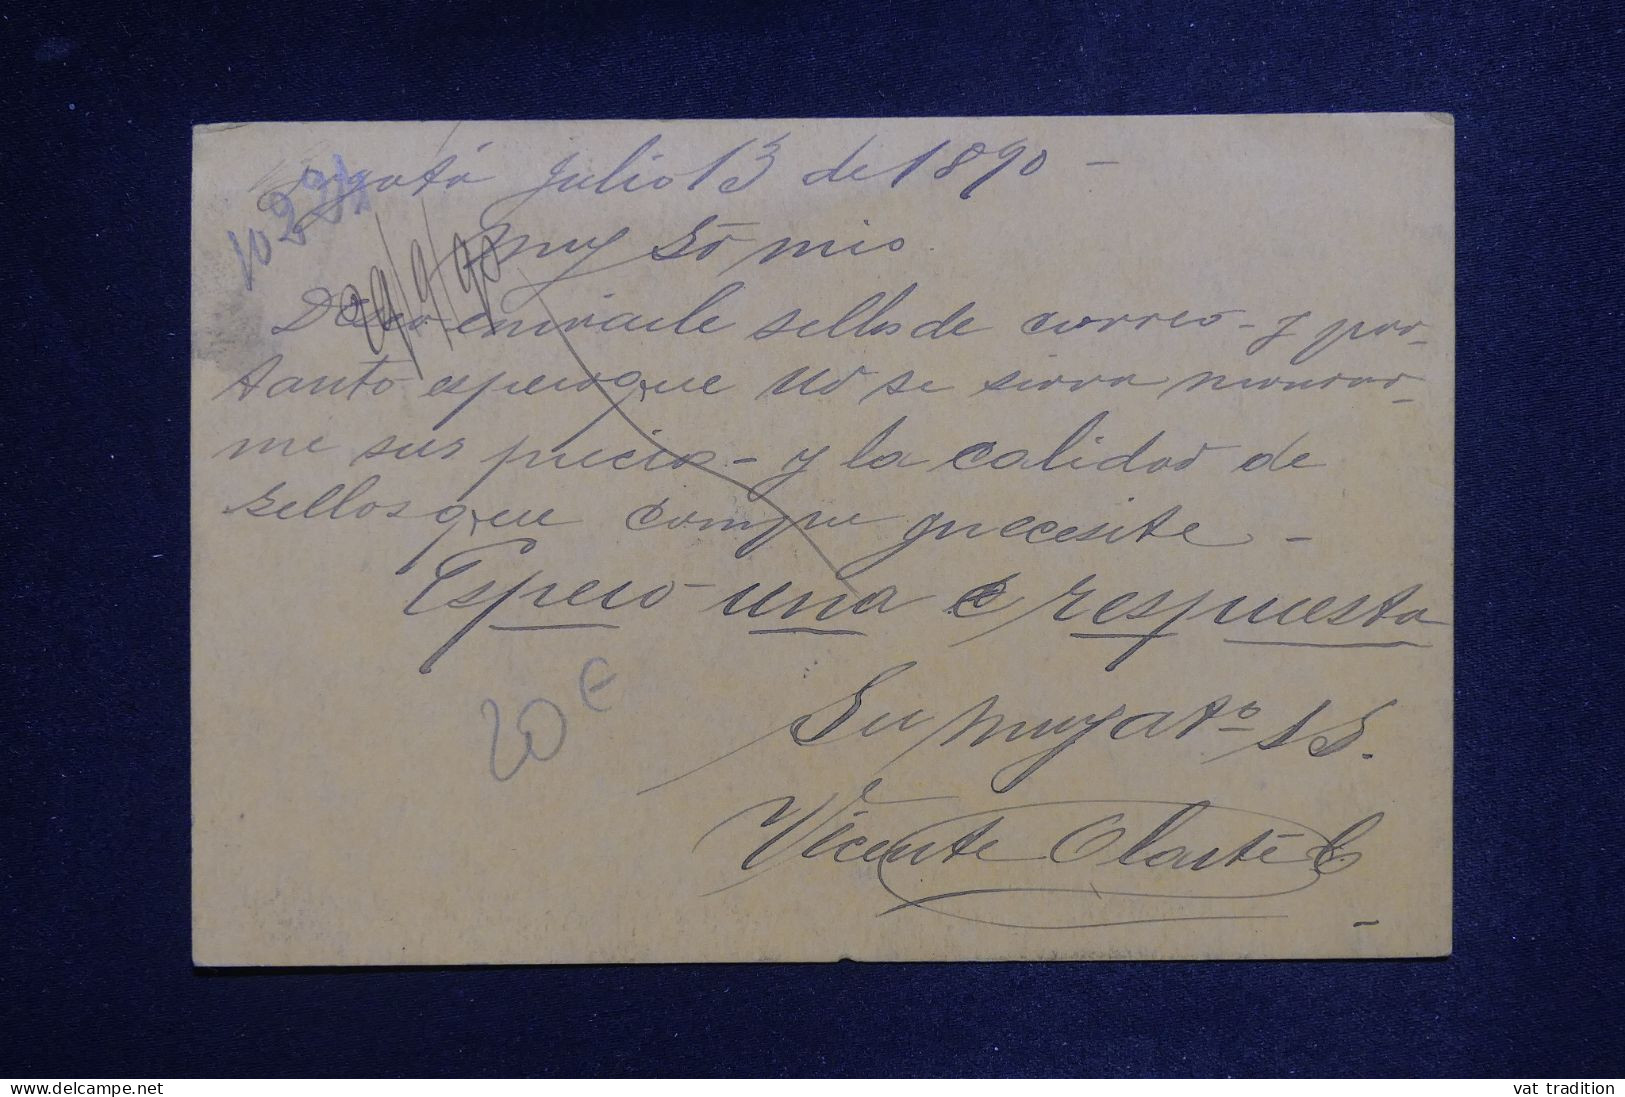 Bogotá Julio 13 de 1890 -
10231
29/9/90
Muy Sõ mio.
Deseo enviarle sellos de correo - y por
tanto espero que Ud se sirva mandar-
me sus precios - y la calidad de
sellos que necesite -
Espero una respuesta
Su muy atº S S.
Vicente Olarte C
20 €
www.delcampe.net
vat tradition